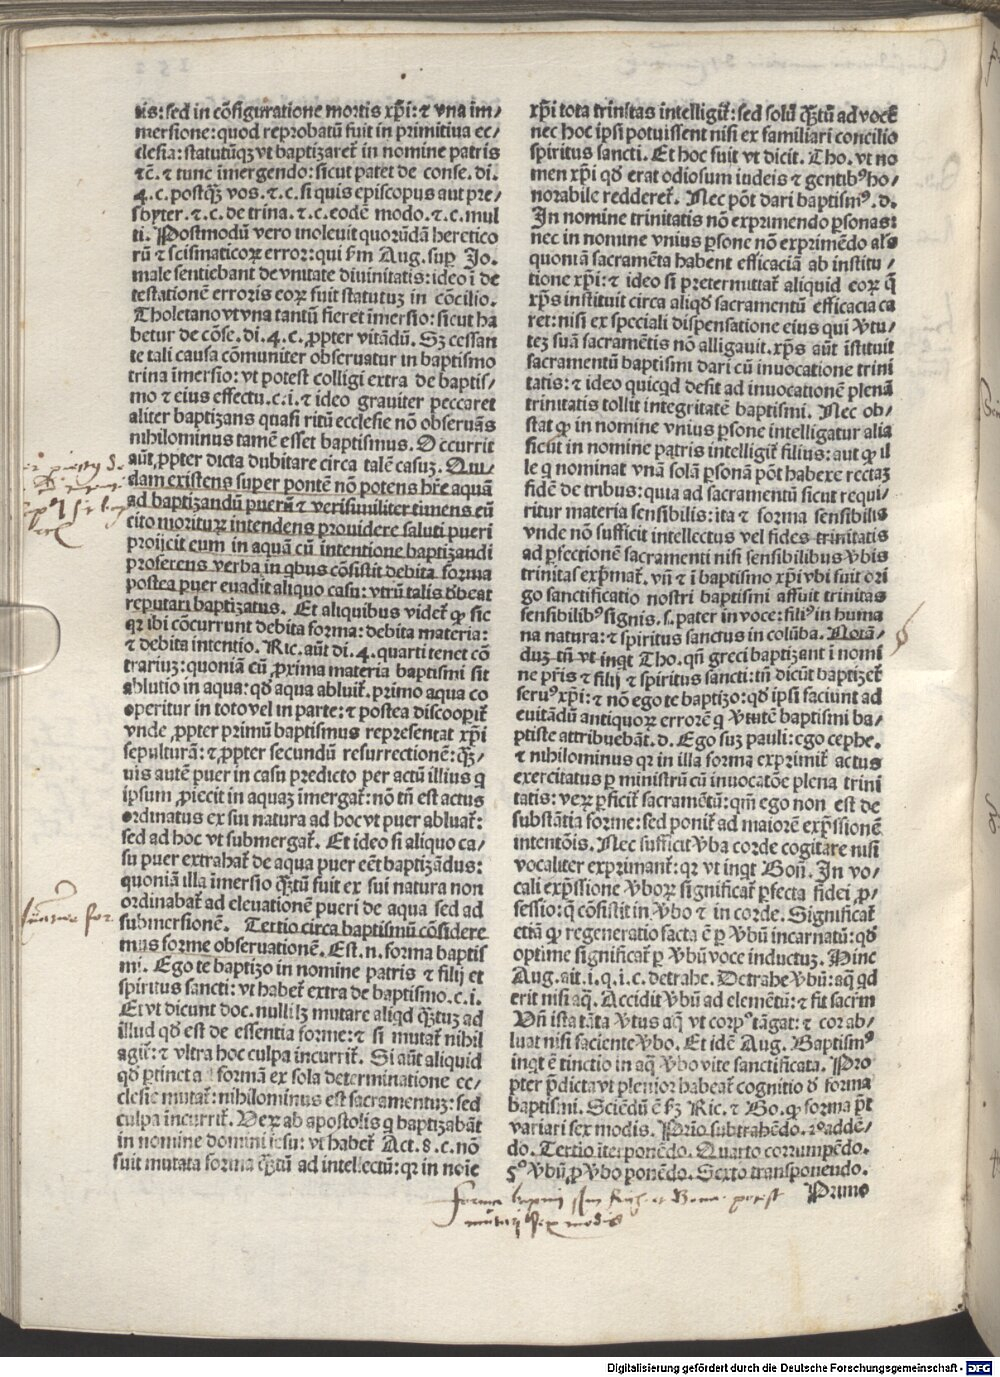 tis: sed in cōfiguratione mortis xp̄i: ⁊ vna im⸗
mersione: quod reprobatū fuit in primitiua ec⸗
clesia: statutūqꝫ vt baptizaret᷑ in nomine patris
⁊c̄. ⁊ tunc īmergendo: sicut patet de conse. di.
4. c. postqꝫ̄ vos. ⁊. c. si quis episcopus aut pre⸗
sbyter. ⁊. c. de trina. ⁊. c. eodē modo. ⁊. c. mul
ti. Postmodū vero inoleuit quorūdā heretico
rū ⁊ scismaticoꝝ error: qui ẜm Aug. suꝑ Jo.
male sentiebant de vnitate diuinitatis: ideo ī de
testationē erroris eoꝝ fuit statutuꝫ in cōcilio.
Tholetano vt vna tantū fieret īmersio: sicut ha
betur de cōse. di. 4. c. ꝓpter vitādū. Sꝫ cessan
te tali causa cōmuniter obseruatur in baptismo
trina īmersio: vt potest colligi extra de baptis⸗
mo ⁊ eius effectu. c. i. ⁊ ideo grauiter peccaret
aliter baptizans quasi ritū ecclesie nō obseruās
nihilominus tamē esset baptismus. Occurrit
aūt ꝓpter dicta dubitare circa talē casuꝫ. Qui⸗
dam existens super pontē nō potens hr̄e aquā
ad baptizandū puerū ⁊ verisimiliter timens eū
cito morituꝝ intendens prouidere saluti pueri
proijcit eum in aquā cū intentione baptizandi
proferens verba in qbus cōsistit debita forma
postea puer euadit aliquo casu: vtrū talis ꝺ̄beat
reputari baptizatus. Et aliquibus videt᷑ ꝙ sic
qꝛ ibi cōcurrunt debita forma: debita materia:
⁊ debita intentio. Ric. aūt di. 4. quarti tenet cō
trariuꝫ: quoniā cū ꝓxima materia baptismi sit
ablutio in aqua: qd̓ aqua abluit᷑. primo aqua co
operitur in toto vel in parte: ⁊ postea discooꝑit᷑
vnde ꝓpter primū baptismus representat xp̄i
sepulturā: ⁊ ꝓpter secundū resurrectionē: qꝫ̄⸗
uis autē puer in casu predicto per actū illius q
ipsum ꝓiecit in aquaꝫ īmergat᷑: nō tn̄ est actus
ordinatus ex sui natura ad hoc vt puer abluat᷑:
sed ad hoc vt submergat᷑. Et ideo si aliquo ca⸗
su puer extrahat᷑ de aqua puer eēt baptizādus:
quoniā illa īmersio qꝫ̄tū fuit ex sui natura non
ordinabat᷑ ad eleuationē pueri de aqua sed ad
submersionē. Tertio circa baptismū cōsidere
mus forme obseruationē. Est .n. forma baptis
mi. Ego te baptizo in nomine patris ⁊ filij et
spiritus sancti: vt habet᷑ extra de baptismo. c. i.
Et vt dicunt doc. nulli lꝫ mutare aliqd qꝫ̄tuꝫ ad
illud qd̓ est de essentia forme: ⁊ si mutat᷑ nihil
agit᷑: ⁊ vltra hoc culpa incurrit᷑. Si aūt aliquid
qd̓ ꝑtinet a formā ex sola determinatione ec⸗
clesie mutat᷑: nihilominus est sacramentuꝫ: sed
culpa incurrit᷑. Veꝝ ab apostolis q baptizabāt
in nomine domini iesu: vt habet᷑ Act. 8. c. nō
fuit mutata forma qꝫ̄tū ad intellectū: qꝛ in noīe
xp̄i tota trinitas intelligit᷑: sed solū qꝫ̄tū ad vocē
nec hoc ipsi potuissent nisi ex familiari concilio
spiritus sancti. Et hoc fuit vt dicit. Tho. vt no
men xp̄i qd̓ erat odiosum iudeis ⁊ gentibꝰ ho⸗
norabile redderet᷑. Nec pōt dari baptismꝰ. d.
In nomine trinitatis nō exprimendo ꝑsonas:
nec in nomine vnius ꝑsone nō exprimēdo alās
quoniā sacramēta habent efficaciā ab institu⸗
tione xp̄i: ⁊ ideo si pretermittat᷑ aliquid eoꝝ q̄
xp̄s instituit circa aliqd̓ sacramentū efficacia ca
ret: nisi ex speciali dispensatione eius qui ꝟtu⸗
teꝫ suā sacramētis nō alligauit. xp̄s aūt īstituit
sacramentū baptismi dari cū inuocatione trini
tatis: ⁊ ideo quicqd desit ad inuocationē plenā
trinitatis tollit integritatē baptismi. Nec ob⸗
stat ꝙ in nomine vnius ꝑsone intelligatur alia
sicut in nomine patris intelligit᷑ filius: aut ꝙ il
le q nominat vnā solā ꝑsonā pōt habere rectaꝫ
fidē de tribus: quia ad sacramentū sicut requi⸗
ritur materia sensibilis: ita ⁊ forma sensibilis
vnde nō sufficit intellectus vel fides trinitatis
ad ꝑfectionē sacramenti nisi sensibilibus ꝟbis
trinitas exp̄mat᷑. vn̄ ⁊ ī baptismo xp̄i vbi fuit ori
go sanctificatio nostri baptismi affuit trinitas
sensibilibꝰ signis. s. pater in voce: filiꝰ in huma
na natura: ⁊ spiritus sanctus in colūba. Notā⸗
duꝫ tn̄ vt inqt Tho. qn̄ greci baptizant ī nomi
ne pr̄is ⁊ filij ⁊ spiritus sancti: tn̄ dicūt baptizet᷑
seruꝰ xp̄i: ⁊ nō ego te baptizo: qd̓ ipsi faciunt ad
euitādū antiquoꝝ errorē q ꝟtutē baptismi ba⸗
ptiste attribuebāt. d. Ego suꝫ pauli: ego cephe.
⁊ nihilominus qꝛ in illa forma exprimit᷑ actus
exercitatus ꝑ ministrū cū inuocatōe plena trini
tatis: veꝝ ꝑficit᷑ sacramētū: qm̄ ego non est de
substātia forme: sed ponit᷑ ad maiorē exp̄ssionē
intentōis. Nec sufficit ꝟba corde cogitare nisi
vocaliter exprimant᷑: qꝛ vt inqt Bon. In vo⸗
cali exp̄ssione ꝟboꝝ significat᷑ ꝑfecta fidei ꝓ⸗
fessio: q̄ cōsistit in ꝟbo ⁊ in corde. Significat᷑
etiā ꝙ regeneratio facta ē ꝑ ꝟbū incarnatū: qd̓
optime significat᷑ ꝑ ꝟbū voce inductuꝫ. Hinc
Aug. ait. i. q. i. c. detrahe. Detrahe ꝟbū: aq̄ qd
erit nisi aq̄. Accidit ꝟbū ad elemētū: ⁊ fit sacr̄m
Vn̄ ista tāta ꝟtus aq̄ vt corpꝰ tāgat: ⁊ cor ab⸗
luat nisi faciente ꝟbo. Et idē Aug. Baptismꝰ
inqt ē tinctio in aq̄ ꝟbo vite sanctificata. Pro
pter p̄dicta vt plenior habeat᷑ cognitio ꝺ̄ forma
baptismi. Sciēdū ē ẜꝫ Ric. ⁊ Bo. ꝙ forma pōt
variari sex modis. Prīo subtrahēdo. 2ᵒ addē⸗
do. Tertio īterponēdo. Quarto corrumpēdo.
5ᵒ ꝟbū ꝓ ꝟbo ponēdo. Sexto transponendo.
Primo
forma baptismi ẜm Rich. et Bona. potest
mutari sex modis
Digitalisierung gefördert durch die Deutsche Forschungsgemeinschaft - DFG